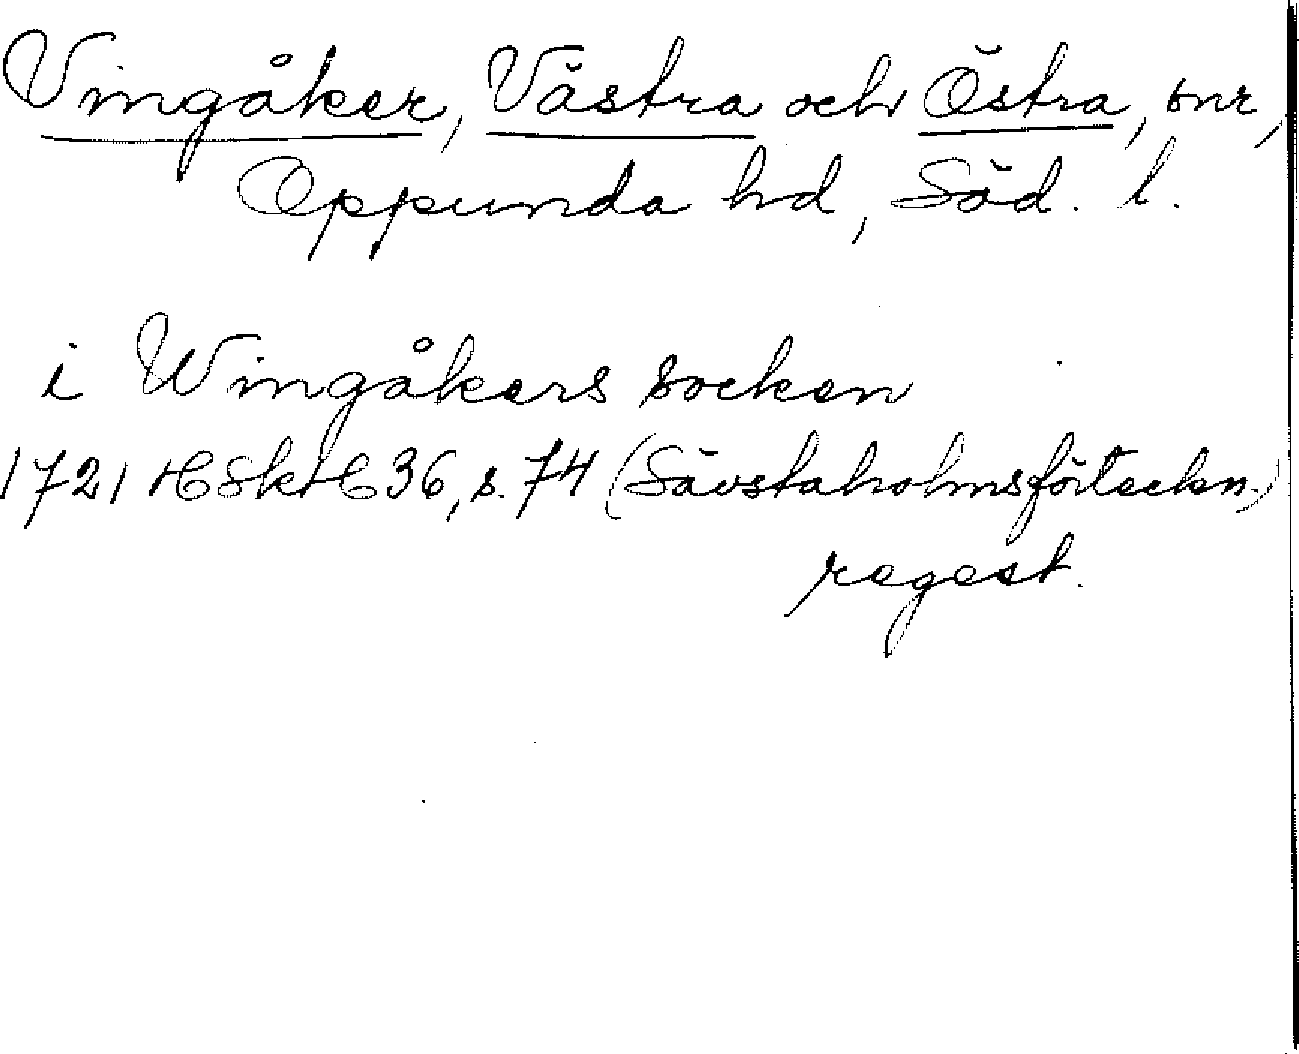 Vingåker, Västra och Östra, snr,
Oppunda hd, Söd. l.
i Wingåkers socken
1721 HSkH 36, s. 74 (Sävstaholmsförteckn.)
regest.